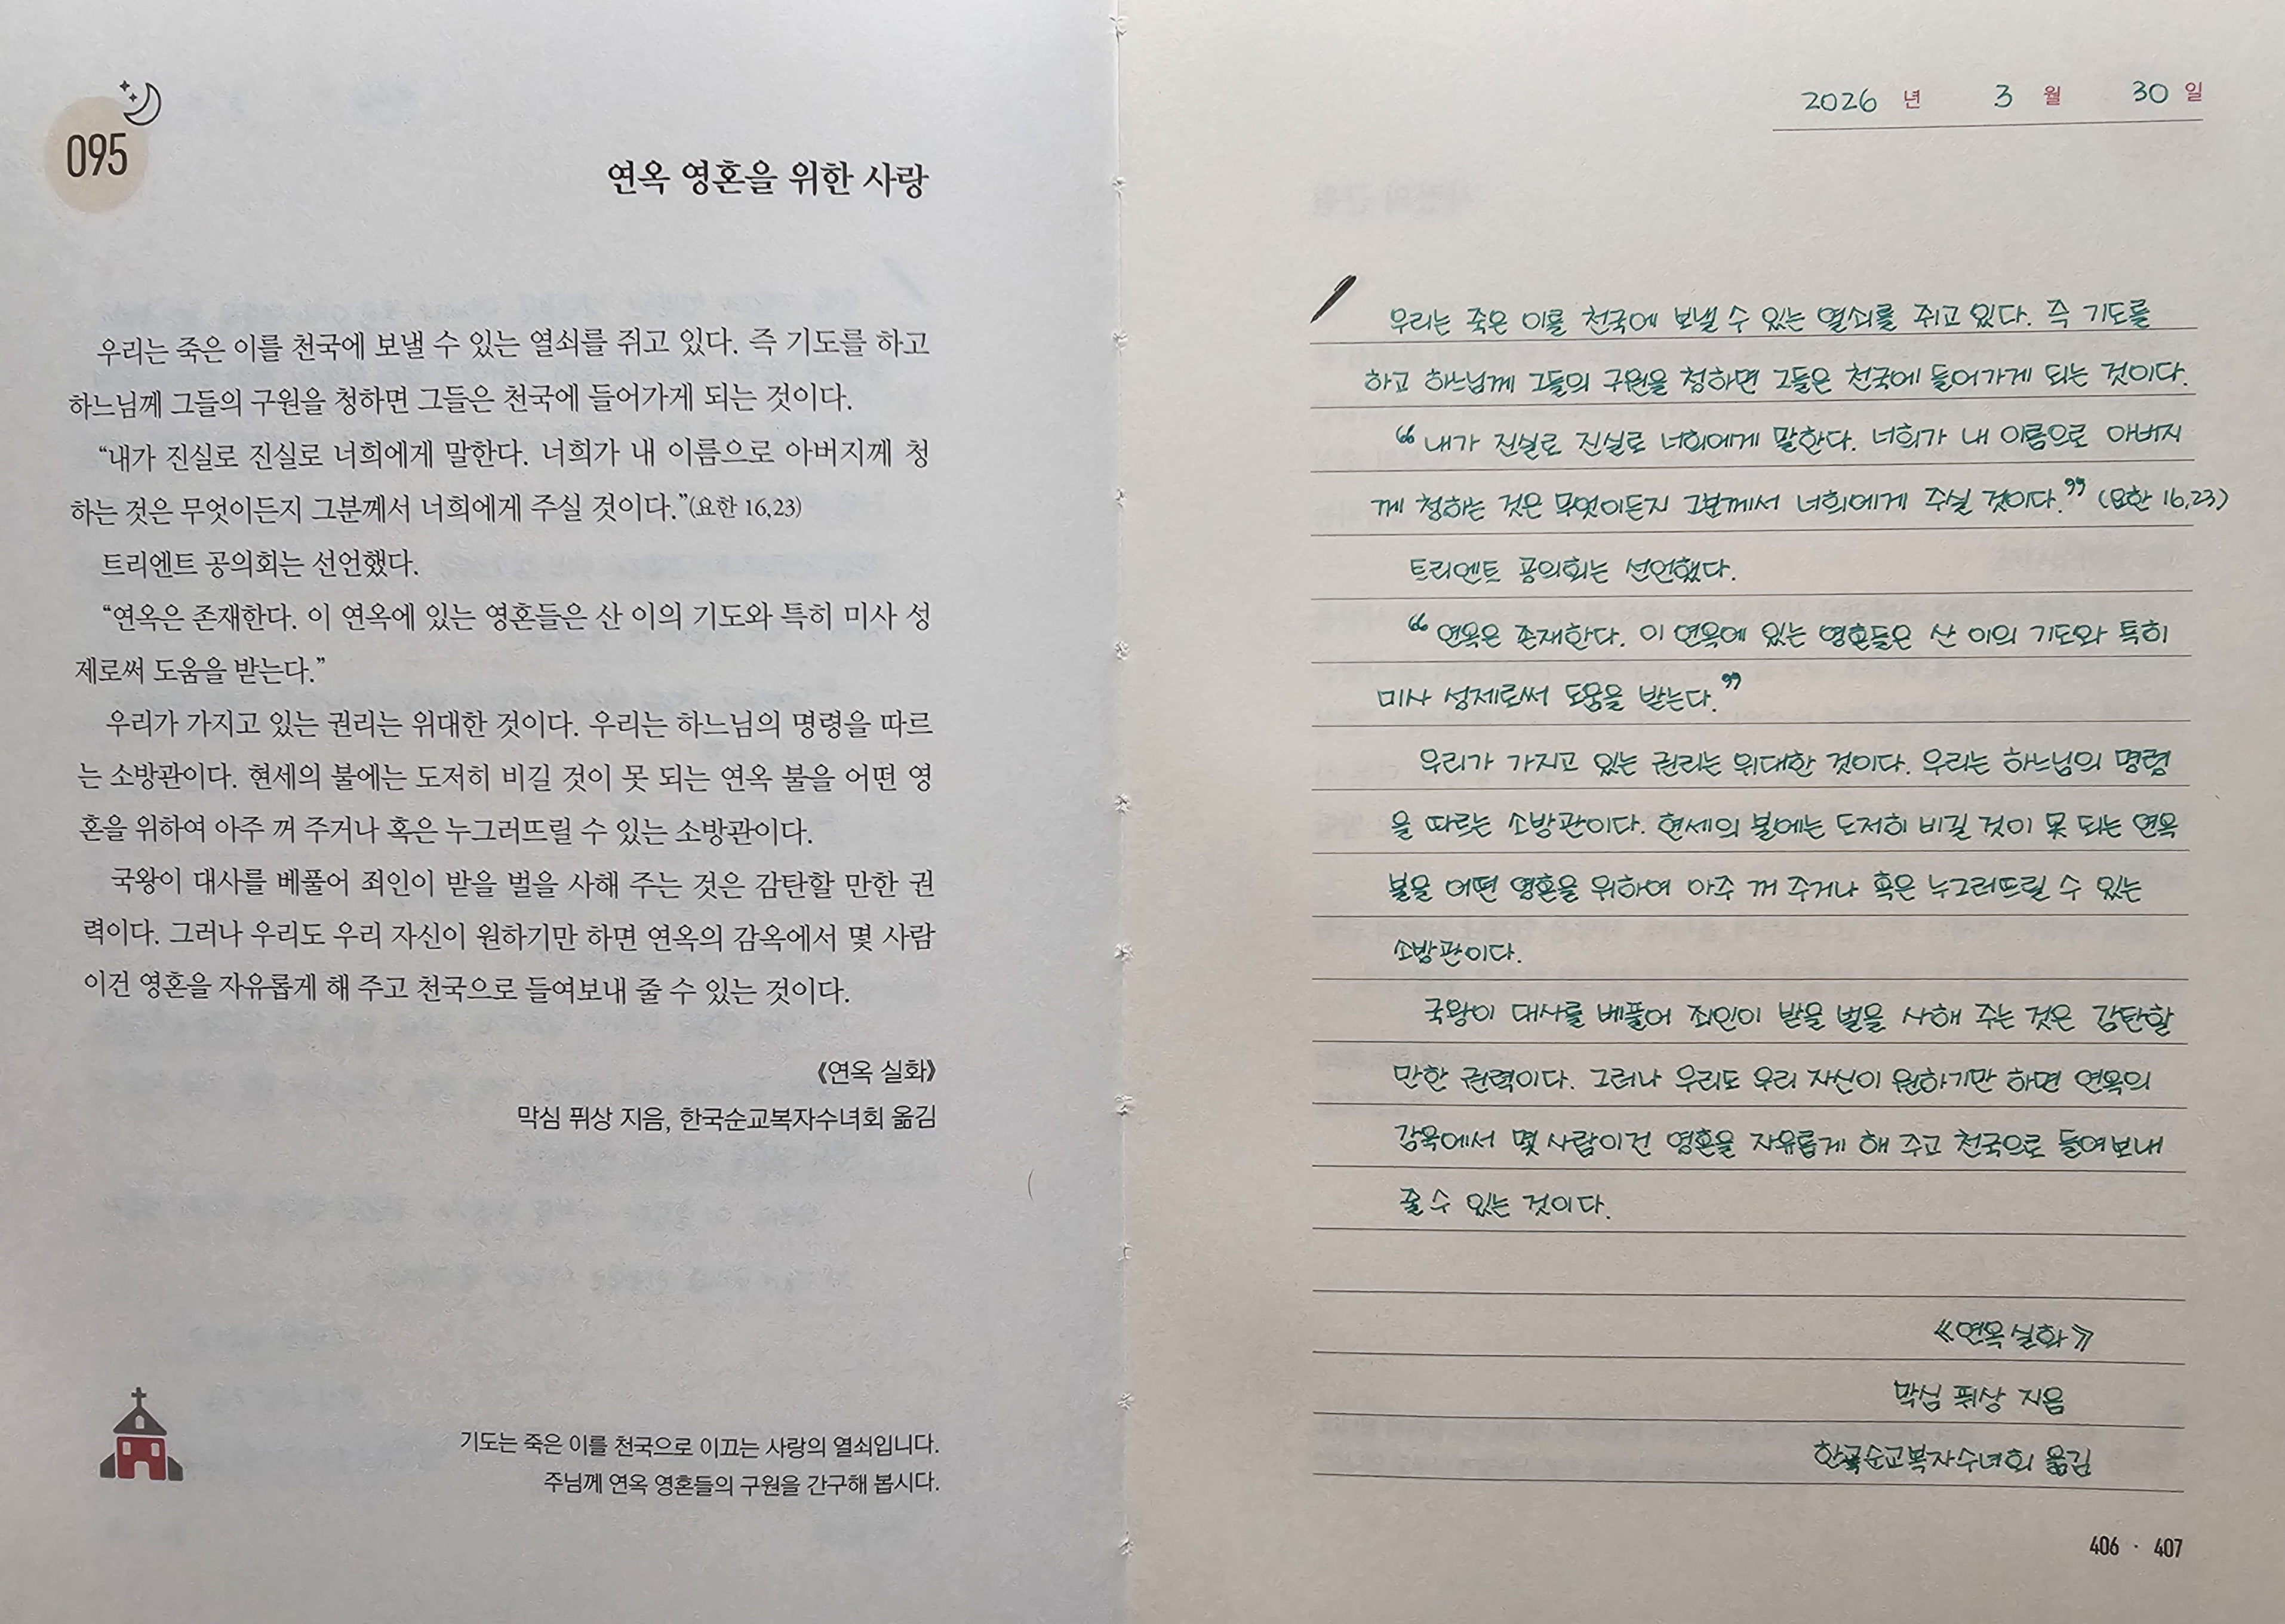 095
연옥 영혼을 위한 사랑
우리는 죽은 이를 천국에 보낼 수 있는 열쇠를 쥐고 있다. 즉 기도를 하고
하느님께 그들의 구원을 청하면 그들은 천국에 들어가게 되는 것이다.
“내가 진실로 진실로 너희에게 말한다. 너희가 내 이름으로 아버지께 청
하는 것은 무엇이든지 그분께서 너희에게 주실 것이다.”(요한 16,23)
트리엔트 공의회는 선언했다.
“연옥은 존재한다. 이 연옥에 있는 영혼들은 산 이의 기도와 특히 미사 성
제로써 도움을 받는다.”
우리가 가지고 있는 권리는 위대한 것이다. 우리는 하느님의 명령을 따르
는 소방관이다. 현세의 불에는 도저히 비길 것이 못 되는 연옥 불을 어떤 영
혼을 위하여 아주 꺼 주거나 혹은 누그러뜨릴 수 있는 소방관이다.
국왕이 대사를 베풀어 죄인이 받을 벌을 사해 주는 것은 감탄할 만한 권
력이다. 그러나 우리도 우리 자신이 원하기만 하면 연옥의 감옥에서 몇 사람
이건 영혼을 자유롭게 해 주고 천국으로 들여보내 줄 수 있는 것이다.
《연옥 실화》
막심 퓌상 지음, 한국순교복자수녀회 옮김
기도는 죽은 이를 천국으로 이끄는 사랑의 열쇠입니다.
주님께 연옥 영혼들의 구원을 간구해 봅시다.
2026 년 3 월 30 일
우리는 죽은 이를 천국에 보낼 수 있는 열쇠를 쥐고 있다. 즉 기도를
하고 하느님께 그들의 구원을 청하면 그들은 천국에 들어가게 되는 것이다.
“내가 진실로 진실로 너희에게 말한다. 너희가 내 이름으로 아버지
께 청하는 것은 무엇이든지 그분께서 너희에게 주실 것이다.” (요한 16,23)
트리엔트 공의회는 선언했다.
“연옥은 존재한다. 이 연옥에 있는 영혼들은 산 이의 기도와 특히
미사 성제로써 도움을 받는다.”
우리가 가지고 있는 권리는 위대한 것이다. 우리는 하느님의 명령
을 따르는 소방관이다. 현세의 불에는 도저히 비길 것이 못 되는 연옥
불을 어떤 영혼을 위하여 아주 꺼 주거나 혹은 누그러뜨릴 수 있는
소방관이다.
국왕이 대사를 베풀어 죄인이 받을 벌을 사해 주는 것은 감탄할
만한 권력이다. 그러나 우리도 우리 자신이 원하기만 하면 연옥의
감옥에서 몇 사람이건 영혼을 자유롭게 해 주고 천국으로 들여보내
줄 수 있는 것이다.
《연옥 실화》
막심 퓌상 지음
한국순교복자수녀회 옮김
406 · 407